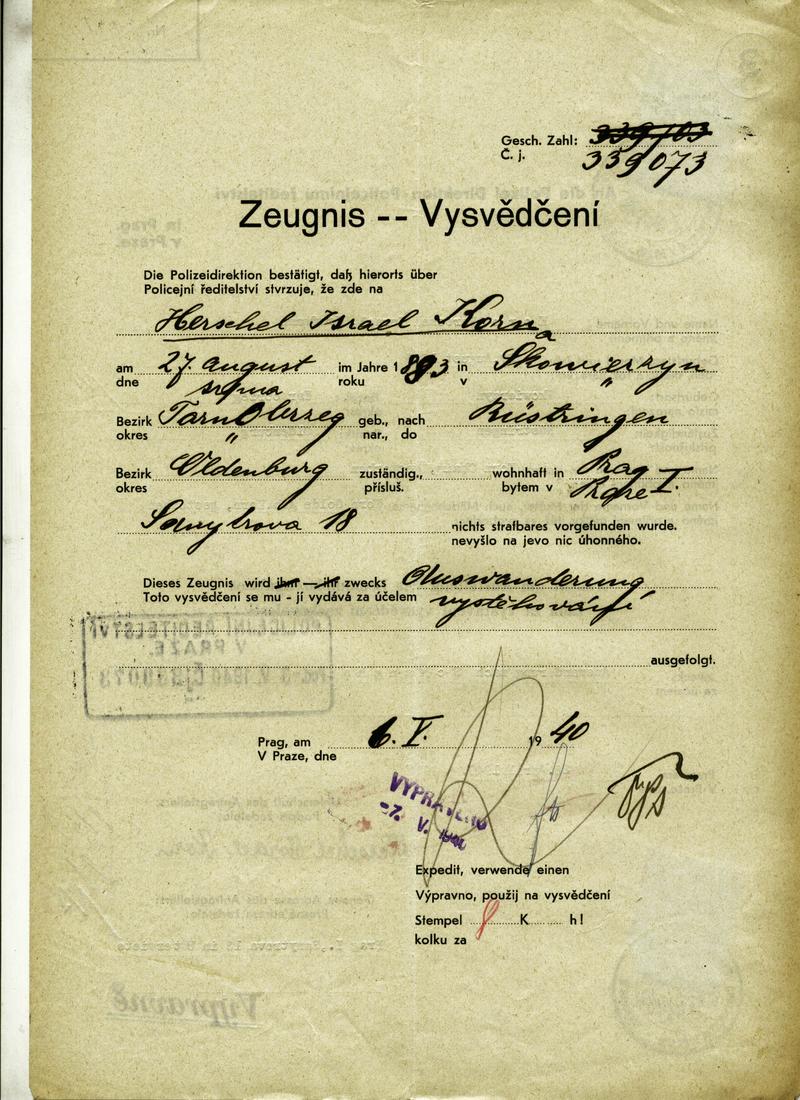 Gesch. Zahl: 339/03
Č. j. 339073
Zeugnis -- Vysvědčení
Die Polizeidirektion bestätigt, daß hierorts über
Policejní ředitelství stvrzuje, že zde na
Herschel Israel Korn a
am 27. august im Jahre 1893 in Skowierzyn
dne srpna roku v "
Bezirk Tarnobrzeg geb., nach Rüstringen
okres " nar., do
Bezirk Oldenburg zuständig., wohnhaft in Prag I.
okres přísluš. bytem v Praze
Samytrova 18 nichts strafbares vorgefunden wurde.
nevyšlo na jevo nic úhonného.
Dieses Zeugnis wird ihm — ihr zwecks Auswanderung
Toto vysvědčení se mu - jí vydává za účelem vystěhování
POLICEJNÍ ŘEDITELSTVÍ
V PRAZE.
V. 1940 339073
ausgefolgt.
Prag, am 6. V. 1940
V Praze, dne
VYPRAVENO
-7. V. 1940
Expedit, verwende einen
Výpravno, použij na vysvědčení
Stempel K h!
kolku za